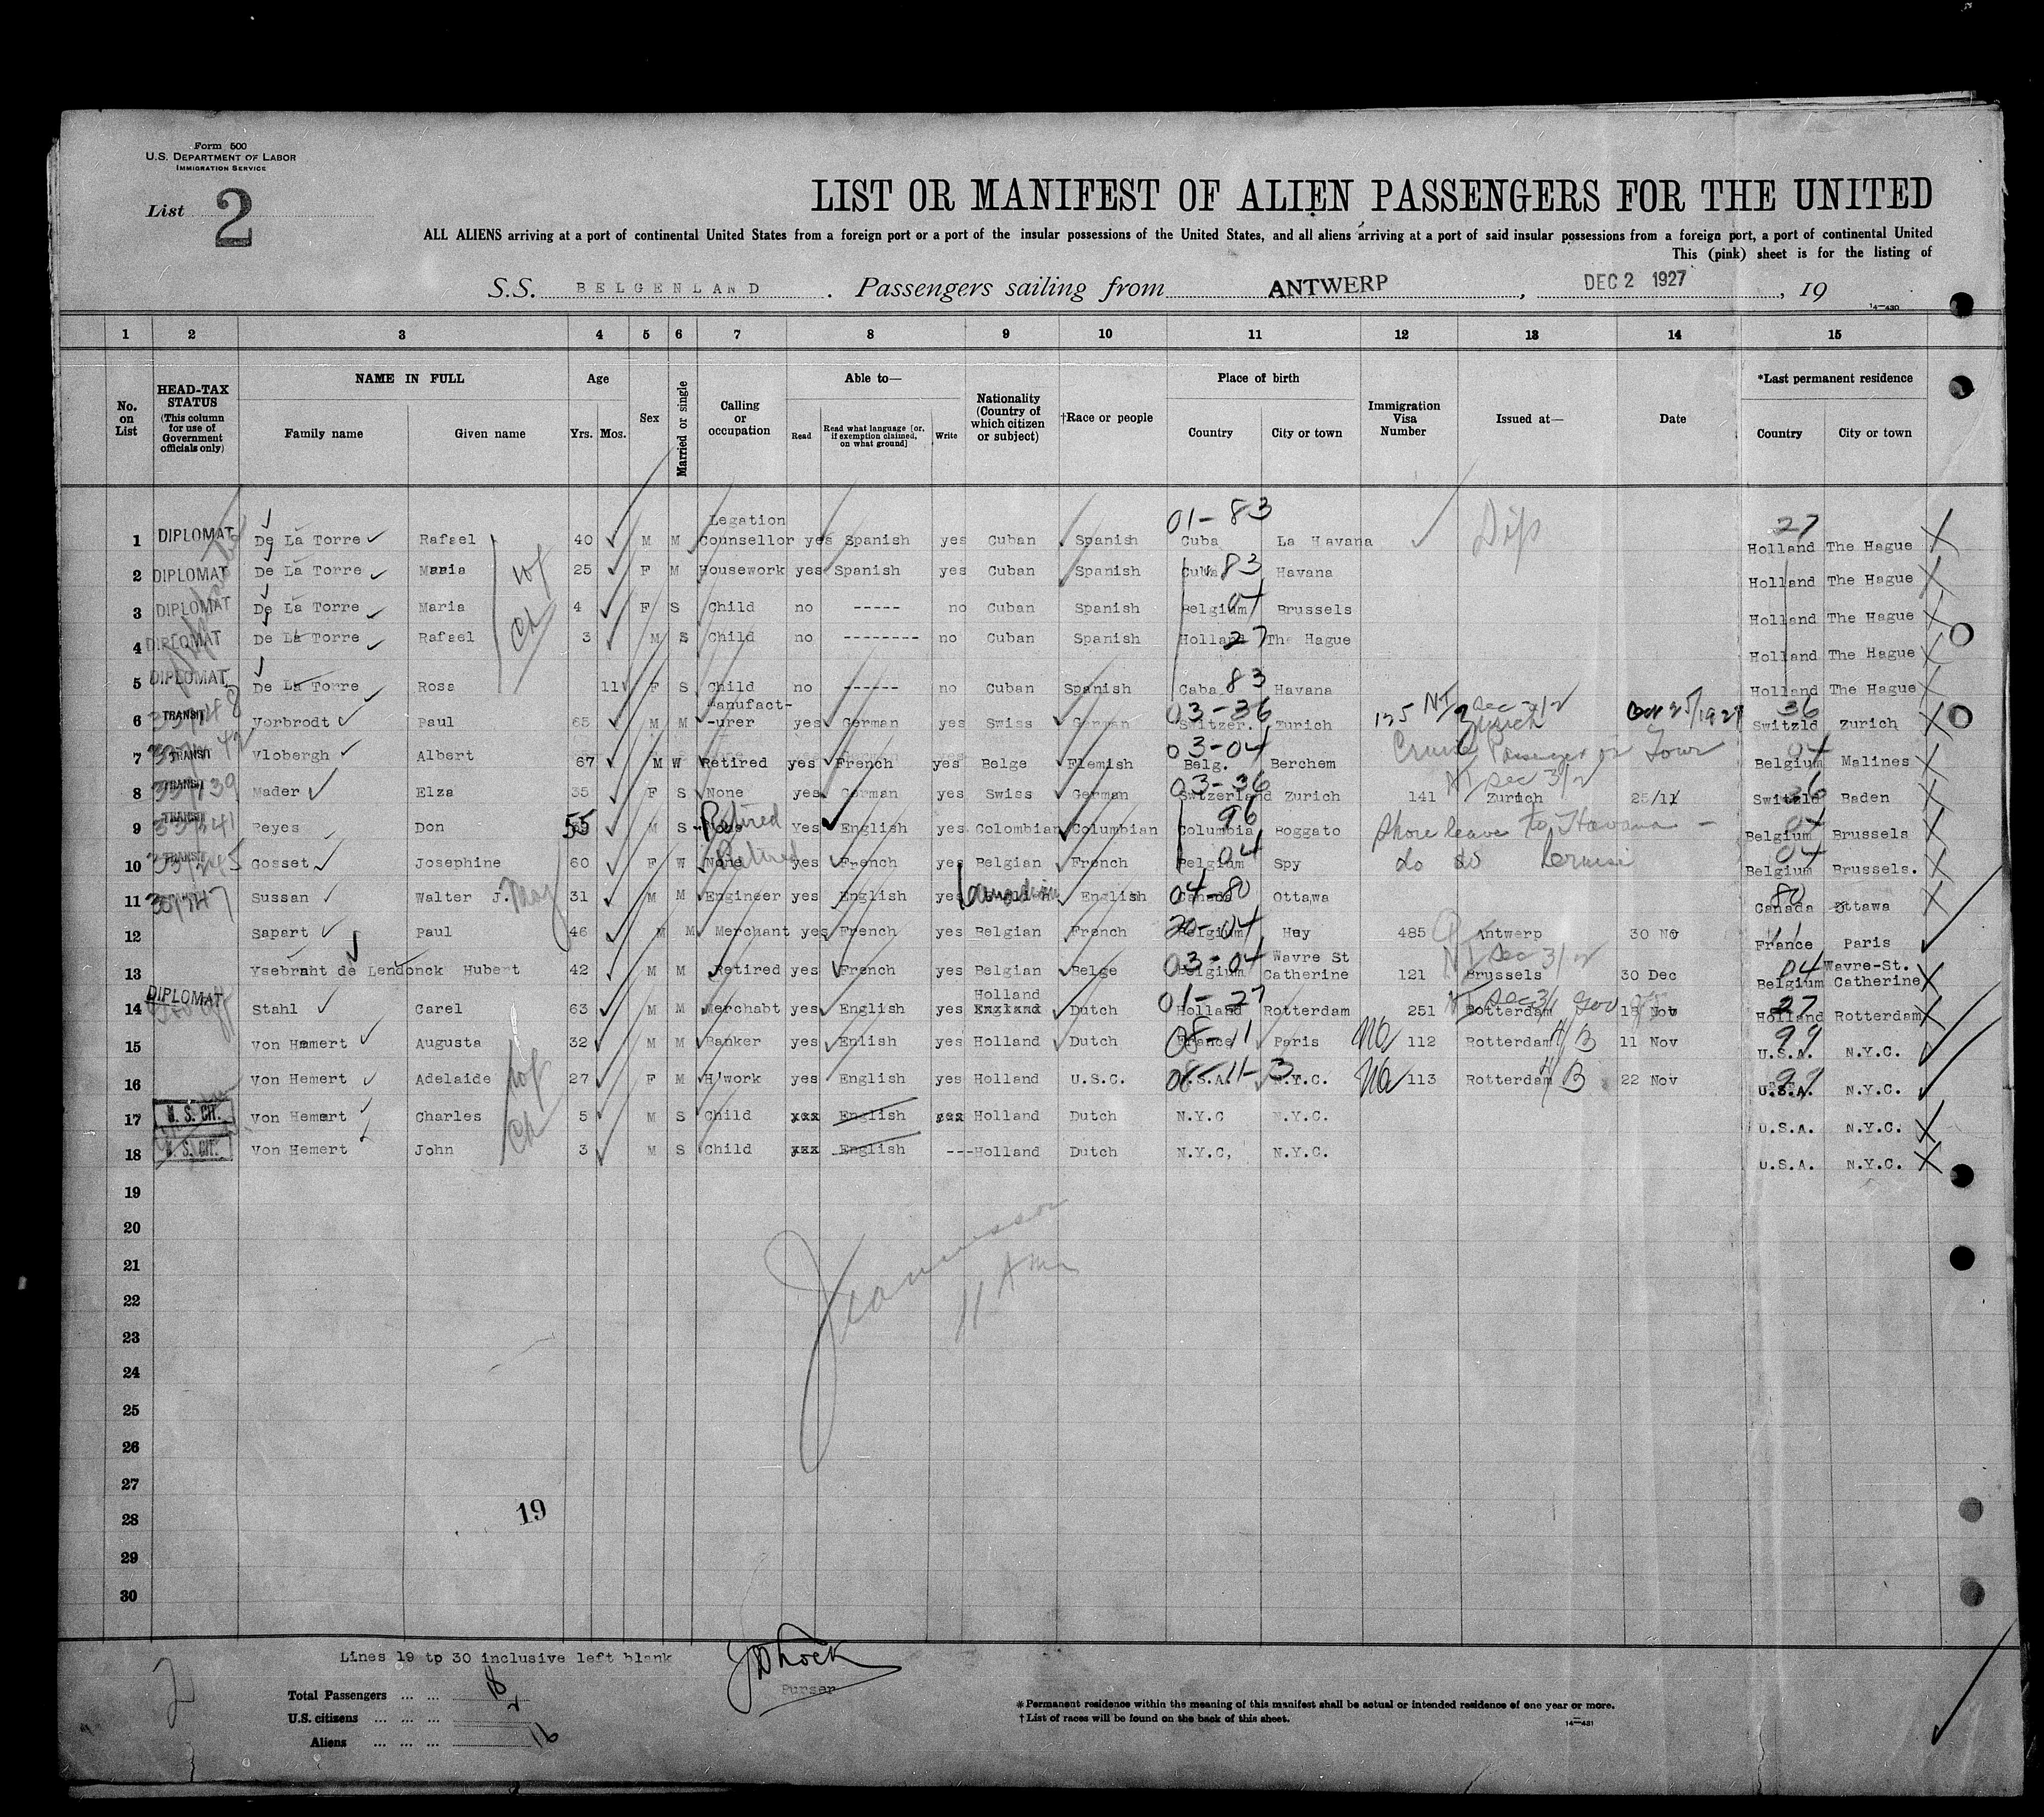 Form 500
U.S. DEPARTMENT OF LABOR
IMMIGRATION SERVICE
List 2
LIST OR MANIFEST OF ALIEN PASSENGERS FOR THE UNITED
ALL ALIENS arriving at a port of continental United States from a foreign port or a port of the insular possessions of the United States, and all aliens arriving at a port of said insular possessions from a foreign port, a port of continental United
This (pink) sheet is for the listing of
S.S. BELGENLAND. Passengers sailing from ANTWERP, DEC 2 1927, 19
14—430
1 2 3 4 5 6 7 8 9 10 11 12 13 14 15
No. on List
HEAD-TAX STATUS (This column for use of Government officials only)
NAME IN FULL Family name Given name
Age Yrs. Mos.
Sex
Married or single
Calling or occupation
Able to— Read Read what language [or, if exemption claimed, on what ground] Write
Nationality (Country of which citizen or subject)
†Race or people
Place of birth Country City or town
Immigration Visa Number
Issued at—
Date
*Last permanent residence Country City or town
1 DIPLOMAT De La Torre Rafael 40 M M Legation Counsellor yes Spanish yes Cuban Spanish 01-83 Cuba La Havana Dip 27 Holland The Hague
2 DIPLOMAT De La Torre Maria 25 F M Housework yes Spanish yes Cuban Spanish Cuba 83 Havana Holland The Hague
3 DIPLOMAT De La Torre Maria 4 F S Child no ----- no Cuban Spanish Belgium 04 Brussels Holland The Hague
4 DIPLOMAT De La Torre Rafael 3 M S Child no -------- no Cuban Spanish Holland 27 The Hague Holland The Hague
5 DIPLOMAT De La Torre Rosa 11 F S Child no ------ no Cuban Spanish Caba 83 Havana Holland The Hague
6 TRANSIT Vorbrodt Paul 65 M M Manufact- -urer yes German yes Swiss German 03-36 Switzer. Zurich 125 Zurich 36 Switzld Zurich
7 TRANSIT Vlobergh Albert 67 M W Retired yes French yes Belge Flemish 03-04 Belg. Berchem Cruise Passenger on Tour 04 Belgium Malines
8 TRANSIT Mader Elza 35 F S None yes German yes Swiss German 03-36 Switzerland Zurich 141 NI Sec 3/2 Zurich 25/11 36 Switzld Baden
9 TRANSIT Reyes Don 55 M S Retired Yes English yes Colombian Columbian 96 Columbia Boggato Shore leave to Havana - 04 Belgium Brussels
10 TRANSIT Gosset Josephine 60 F W None Retired yes French yes Belgian French 04 Belgium Spy do do Cruise 04 Belgium Brussels.
11 Sussan Walter J. May 31 M M Engineer yes English yes Canadian English 04-80 Canada Ottawa 80 Canada Ottawa
12 Sapart Paul 46 M M Merchant yes French yes Belgian French 20-04 Belgium Huy 485 Antwerp 30 No France Paris
13 Ysebraht de Lendonck Hubert 42 M M Retired yes French yes Belgian Belge 03-04 Belgium Wavre St Catherine 121 NI Sec 3/2 Brussels 30 Dec 04 Belgium Wavre-St. Catherine
14 DIPLOMAT Stahl Carel 63 M M Merchabt yes English yes Holland England Dutch 01-27 Holland Rotterdam 251 Rotterdam 18 Nov 27 Holland Rotterdam
15 Von Hemert Augusta 32 M M Banker yes Enlish yes Holland Dutch 08-11 France Paris No 112 Rotterdam 4 B 11 Nov 99 U.S.A. N.Y.C.
16 Von Hemert Adelaide 27 F M H'work yes English yes Holland U.S.C. 08-11-3 U.S.A. N.Y.C. No 113 Rotterdam 4 B 22 Nov 99 U.S.A. N.Y.C.
17 U. S. CIT. Von Hemert Charles 5 M S Child xxx English yes Holland Dutch N.Y.C N.Y.C. U.S.A. N.Y.C.
18 U. S. CIT. Von Hemert John 3 M S Child xxx English --- Holland Dutch N.Y.C, N.Y.C. U.S.A. N.Y.C.
wf
Ch
wf
Ch
19
20
21
11 Am
22
23
24
25
26
27
19
28
29
30
Lines 19 to 30 inclusive left blank
Purser
2
Total Passengers ... ... 18
U.S. citizens ... ... ... 2
Aliens ... ... ... 16
*Permanent residence within the meaning of this manifest shall be actual or intended residence of one year or more.
†List of races will be found on the back of this sheet.
14—431